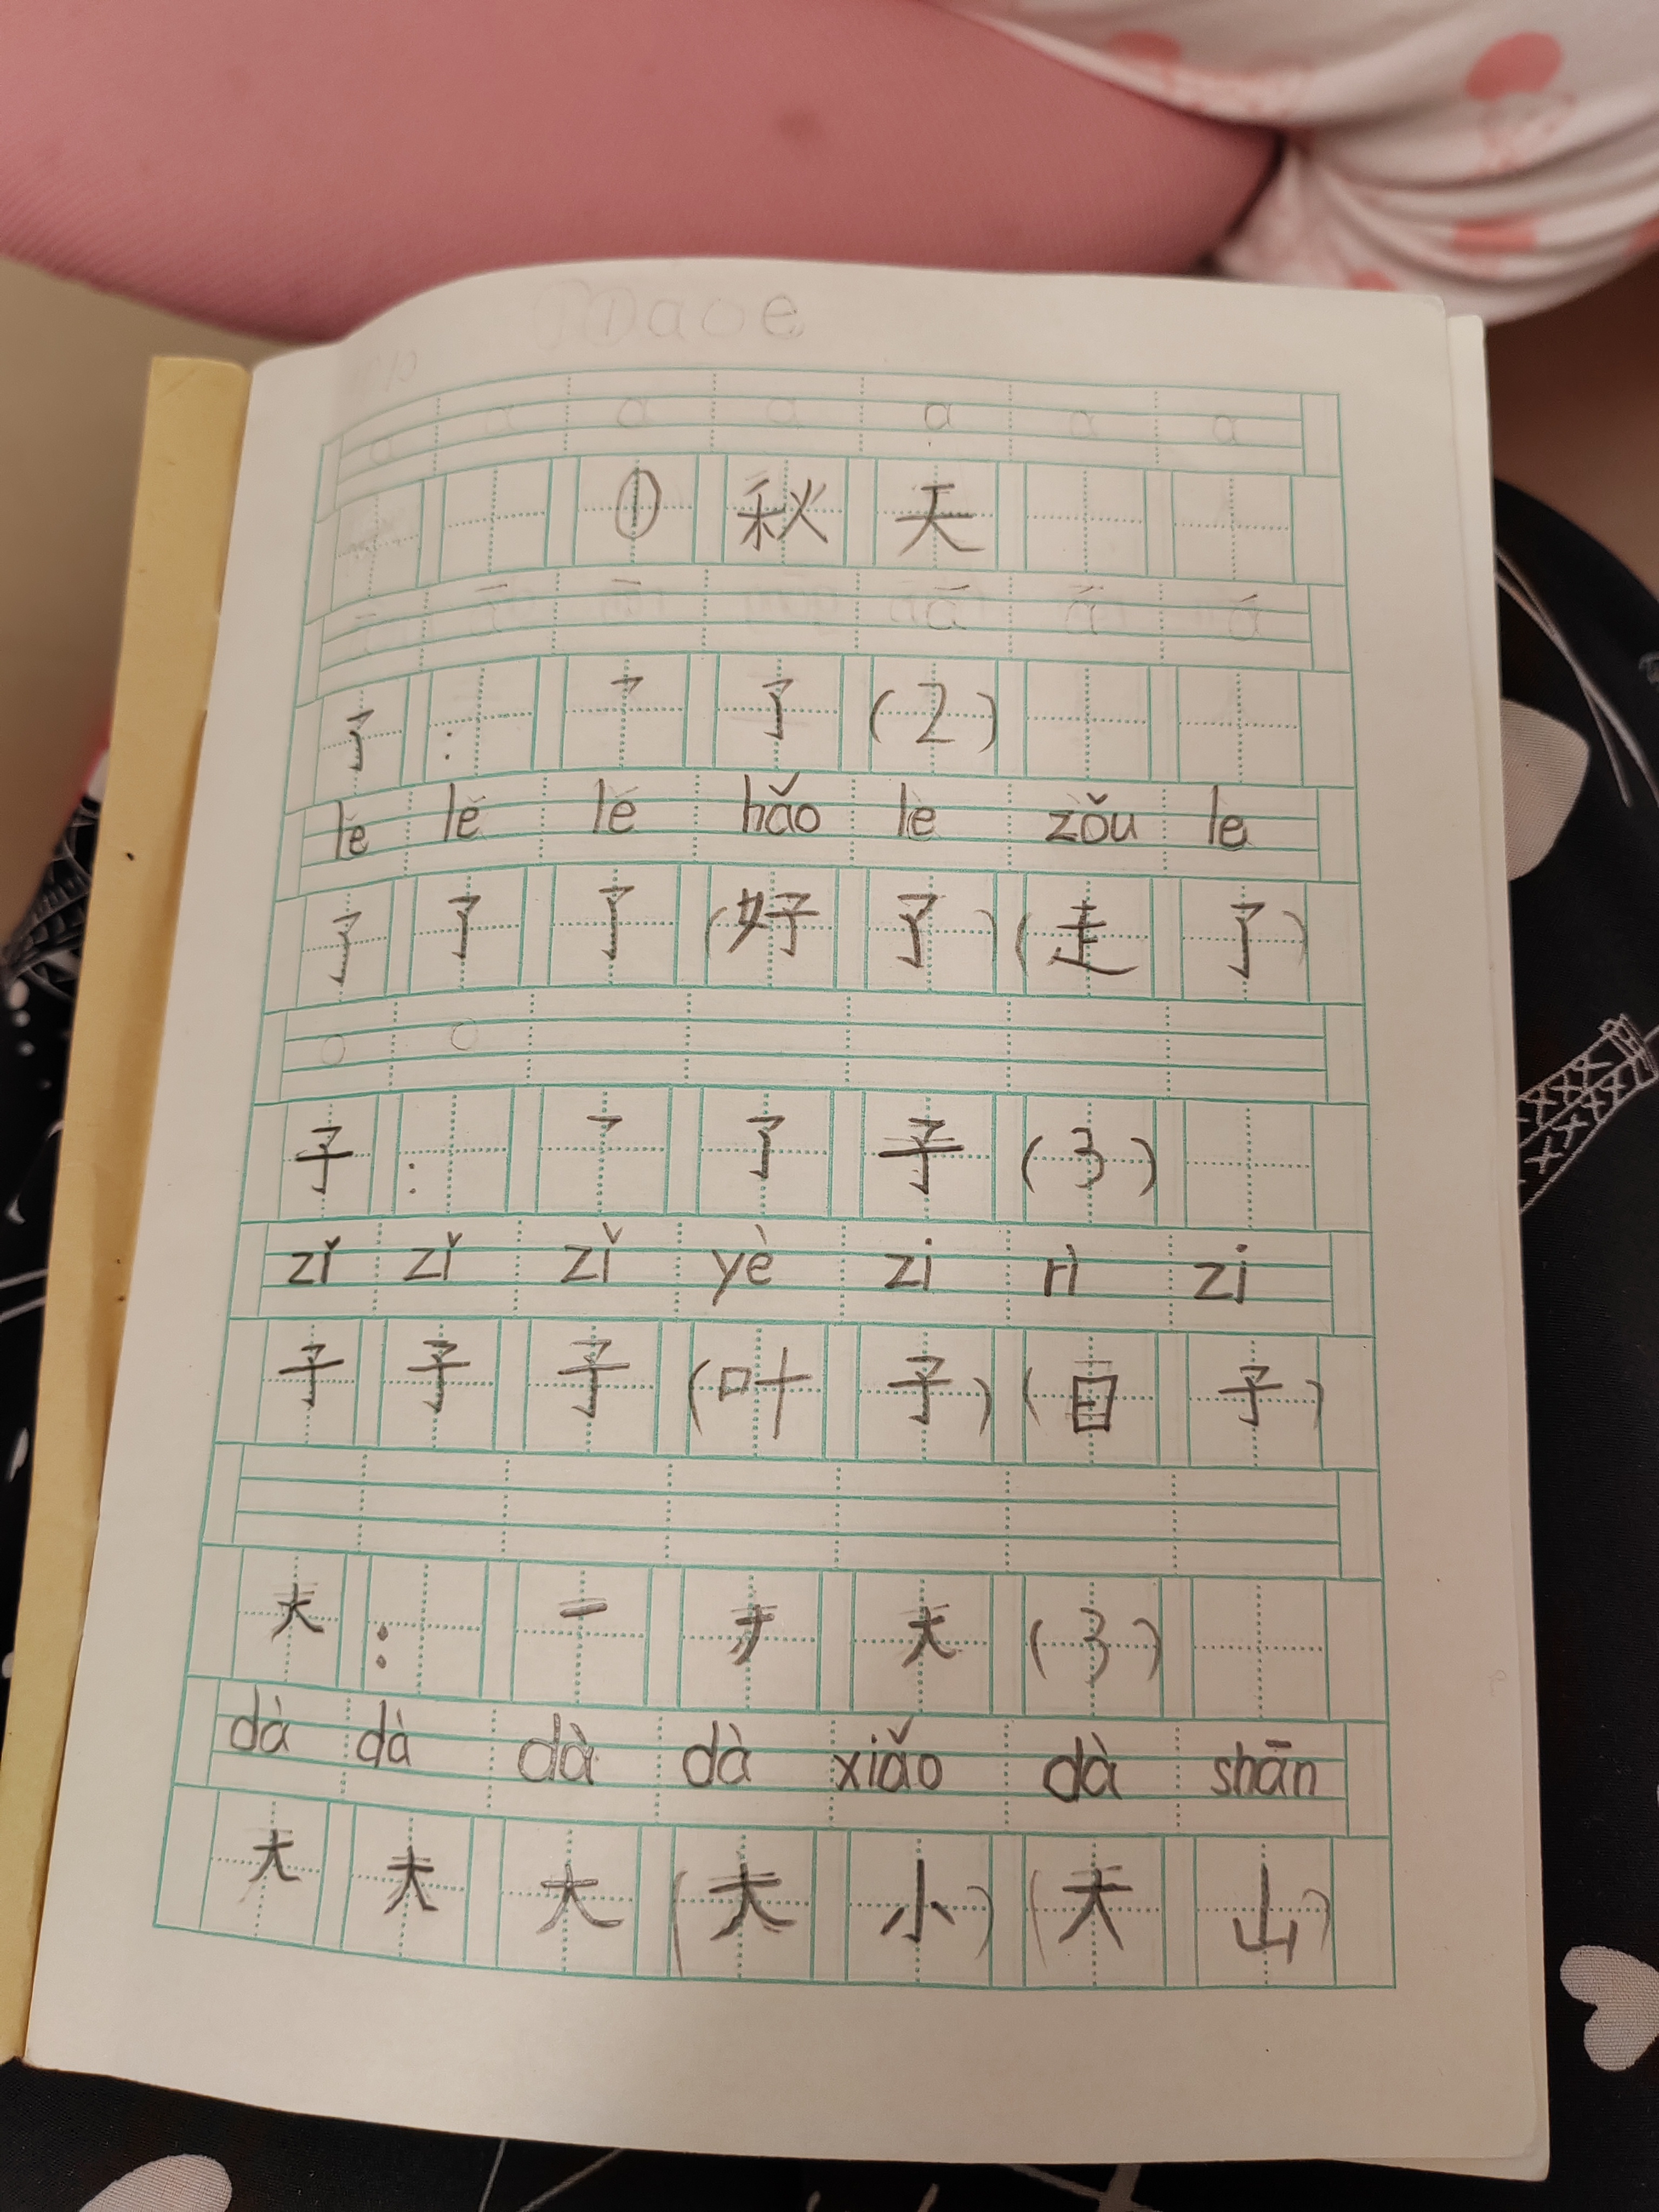 a a a a a a a
① 秋 天
了 : ㇇ 了 (2)
le le le hǎo le zǒu le
了 了 了 (好 了) (走 了)
o o
子 : ㇇ 了 子 (3)
zǐ zǐ zǐ yè zi rì zi
子 子 子 (叶 子) (日 子)
大 : 一 ナ 大 (3)
dà dà dà dà xiǎo dà shān
大 大 大 (大 小) (大 山)